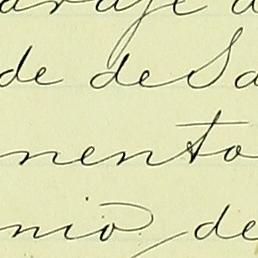 de de Sa
nento
nio de